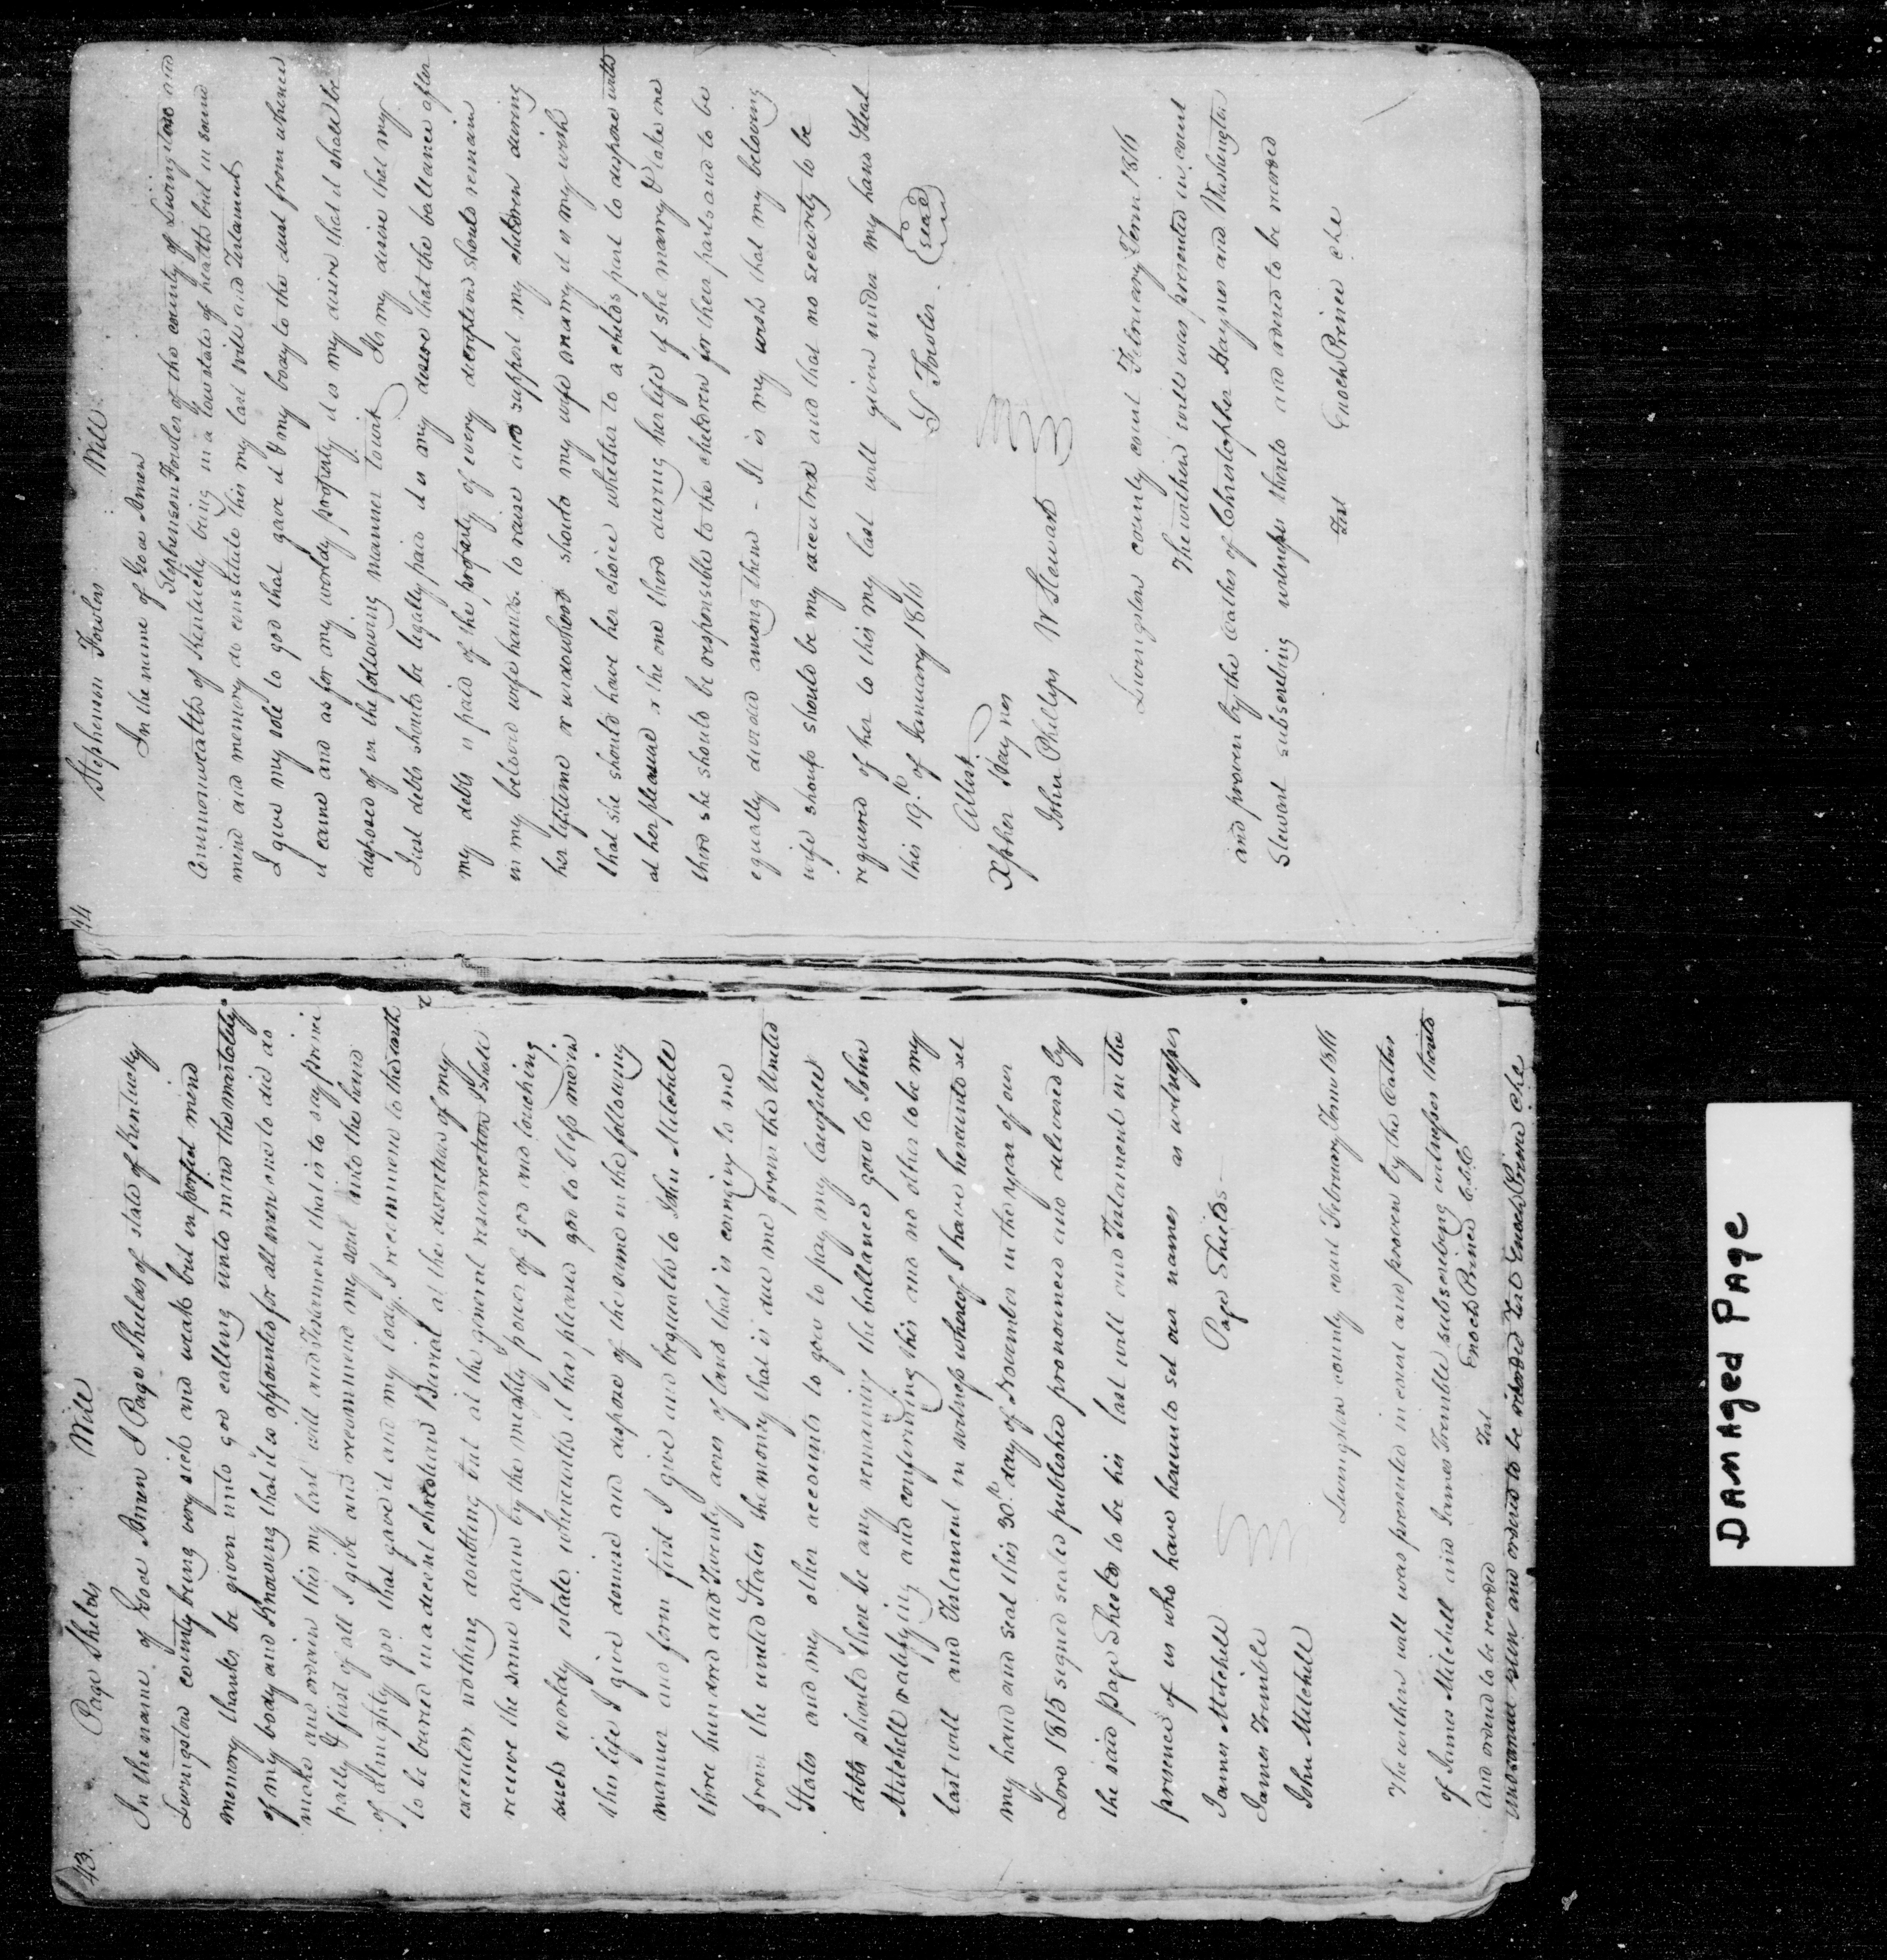 43.
Page Shields Will
In the name of God Amen I Page Shields of state of Kentucky
Livingston county being very sick and weak but in perfect mind
memory thanks be given unto god calling unto mind the mortality
of my body and knowing that it is appointed for all men one to die do
make and ordain this my last will and Testament that is to say princi
pally & first of all I give and recommend my soul into the hand
of almighty god that gave it and my body I recommend to the earth
to be buried in a decent christian Burial at the discretion of my
executor nothing doubting but at the general resurrection I shall
receive the same again by the mighty power of god and touching
such worldy estate wherewith it has pleased god to bless me in
this life I give demise and dispose of the same in the following
manner and form first I give and bequeath to John Mitchell
three hundred and Twenty acres of land that is coming to me
from the united States the mony that is due me from the United
States and my other accounts to gow to pay my lawfull
debts should there be any remaining the ballance gow to John
Mitchell ratifying and confirming this and no other to be my
last will and Testament in witness whereof I have hereunto set
my hand and seal this 30th day of November in the year of our
Lord 1815 signed sealed published pronounced and delivered by
the said Page Shields to be his last will and Testament in the
presence of us who have hereunto set our names as witnesses
James Mitchell Page Shields
James Trimble
John Mitchell
Livingston county court February Term 1816
The within will was presented in court and proven by the oathes
of James Mitchell and James Trimble subscribing witnesses thereto
And ordered to be recorded Test Enoch Prince Clk
and ordered to be recorded Test Enoch Prince clk
44
Stephenson Fowlers Will
In the name of God Amen
Stephenson Fowler of the county of Livingston and
Commonwealth of Kentucky being in a low state of health but in sound
mind and memory do constitute this my last Will and Testament
I give my sole to god that gave it & my body to the dust from whence
it came and as for my worldy property it is my desire that it shall be
disposed of in the following manner towit Its my desire that my
Just debts should be legally paid it is my desire that the ballance after
my debts is paid of the property of every description should remain
in my beloved wife hands to raise and support my children during
her lifetime or widowhood should my wife marry it is my wish
that she should have her choice whether to a childs part to dispose with
at her pleasure or the one third during her life if she marry & take one
third she should be responsible to the children for their parts and to be
equally divided among them - It is my wish that my beloving
wife should be my executrix and that no security to be
required of her to this my last will given under my hand & seal
this 19th of January 1816
Attest S Fowler seal
Xpher Haynes
John Phillips W Stewart
Livingston county court February Term 1816
The within will was presented in court
and proven by the oathes of Christopher Haynes and Washington
Stewart subscribing witnesses thereto and ordered to be recorded
Test Enoch Prince clk
DAMAGED PAGE